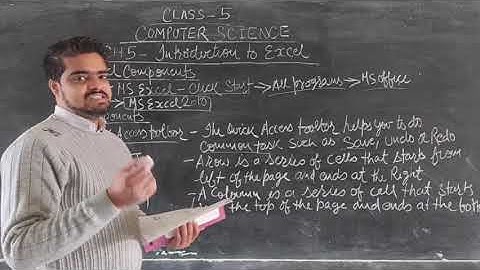 CLASS-5
COMPUTER SCIENCE
5- Introduction to Excel
Components
MS Excel - Click Start → All programs → MS office
→ MS Excel 2010
onents
Access toolbar - The Quick Access toolbar helps you to do
Common task such as Save, Undo & Redo
- A Row is a series of cells that starts from
left of the page and ends at the Right
- A Column is a series of cell that starts
the top of the page and ends at the bott